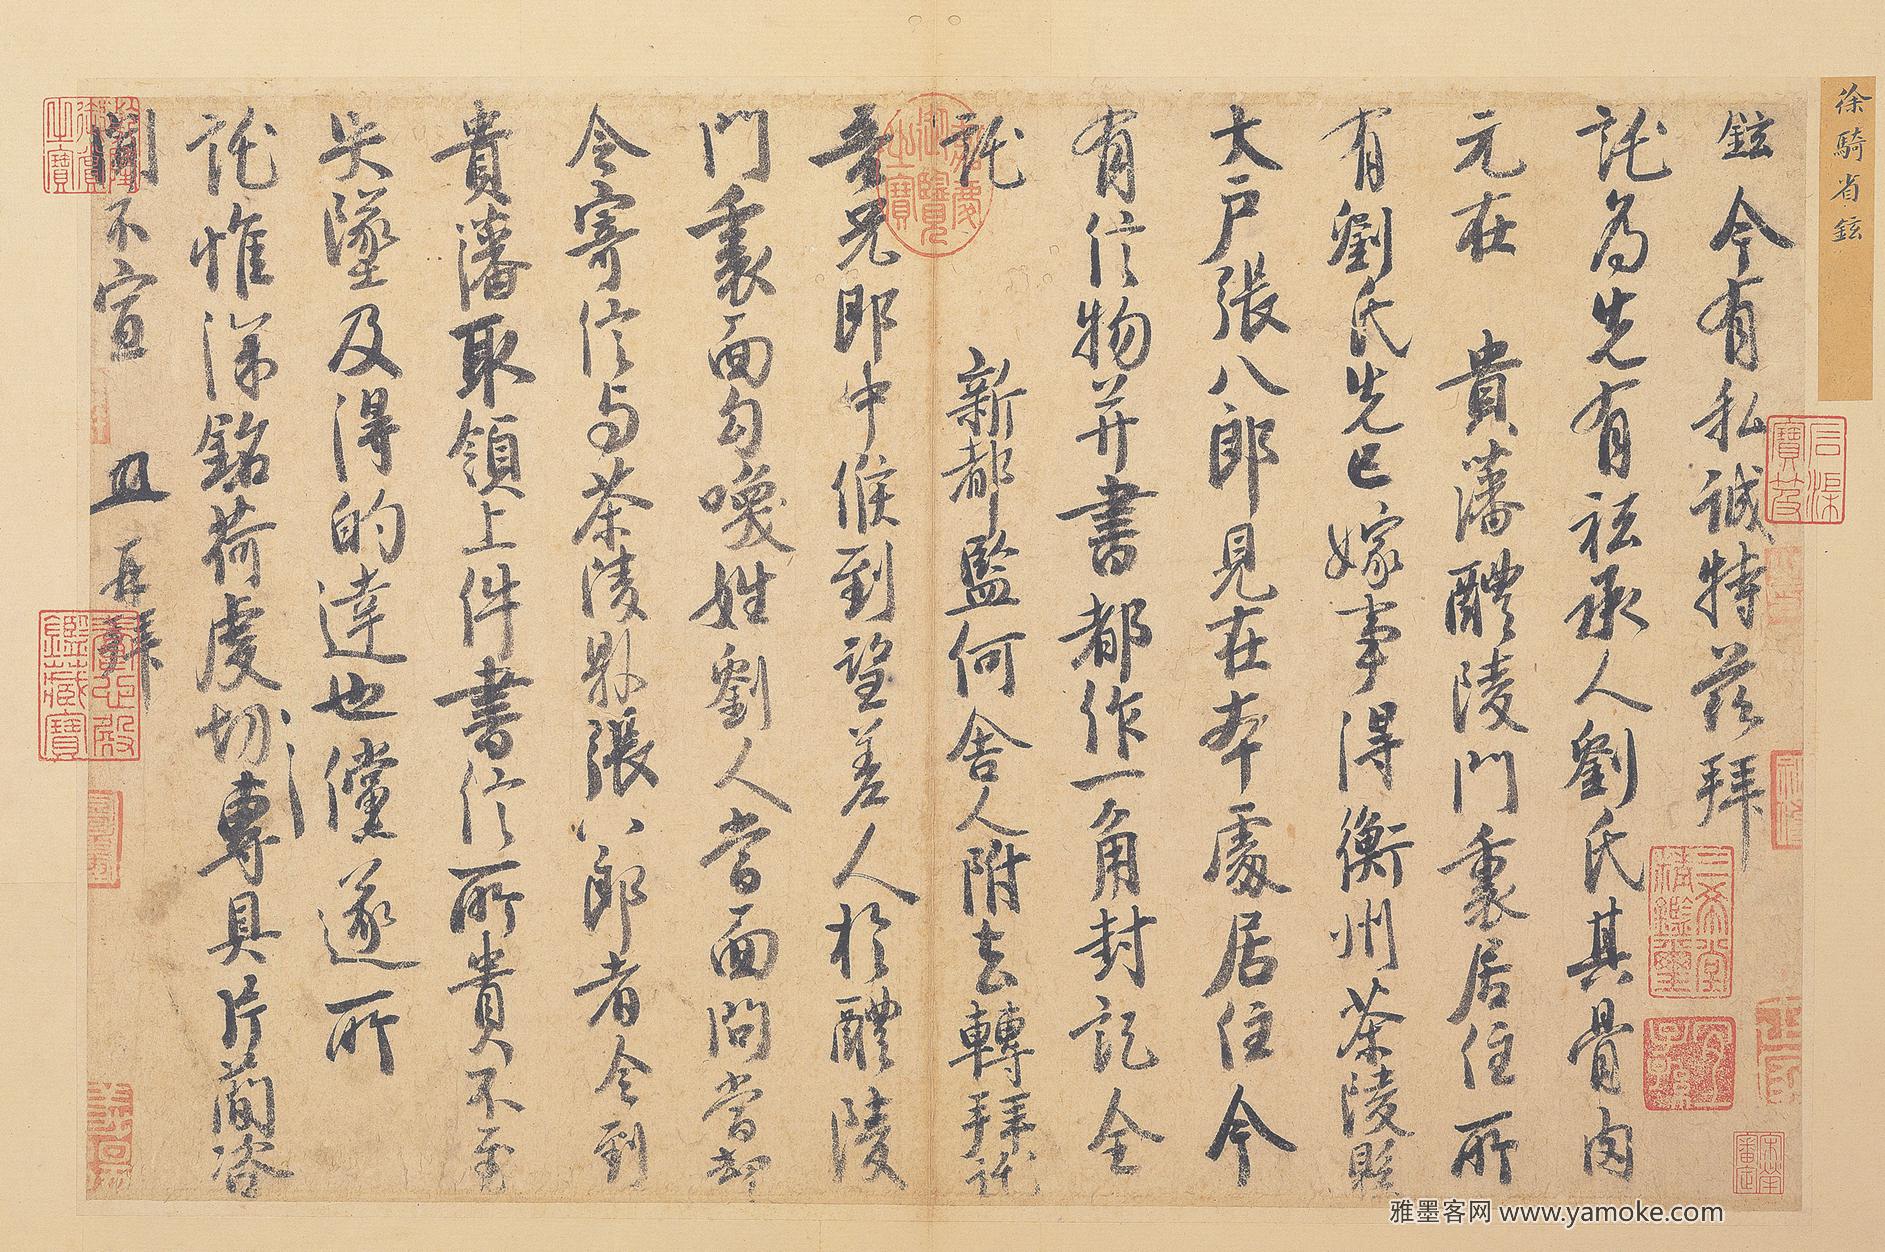 徐騎省鉉
鉉今有私誠特茲拜
託為先有祗承人劉氏其骨肉
元在 貴藩醴陵門裏居住所
有劉氏先已嫁事得衡州茶陵縣
大戶張八郎見在本處居住今
有信物并書都作一角封訖全
託 新都監何舍人附去轉拜託
吾兄郎中候到望差人於醴陵
門裏面勾喚姓劉人當面問當却
令寄信與茶陵縣張八郎者令到
貴藩取領上件書信所貴不至
失墜及得的達也儻遂所
託惟深銘荷虔切專具片簡咨
聞不宣 再拜
石渠寶笈
三希堂精鑑璽
宜子孫
嘉慶御覽之寶
養心殿鑑藏寶
雅墨客网 www.yamoke.com